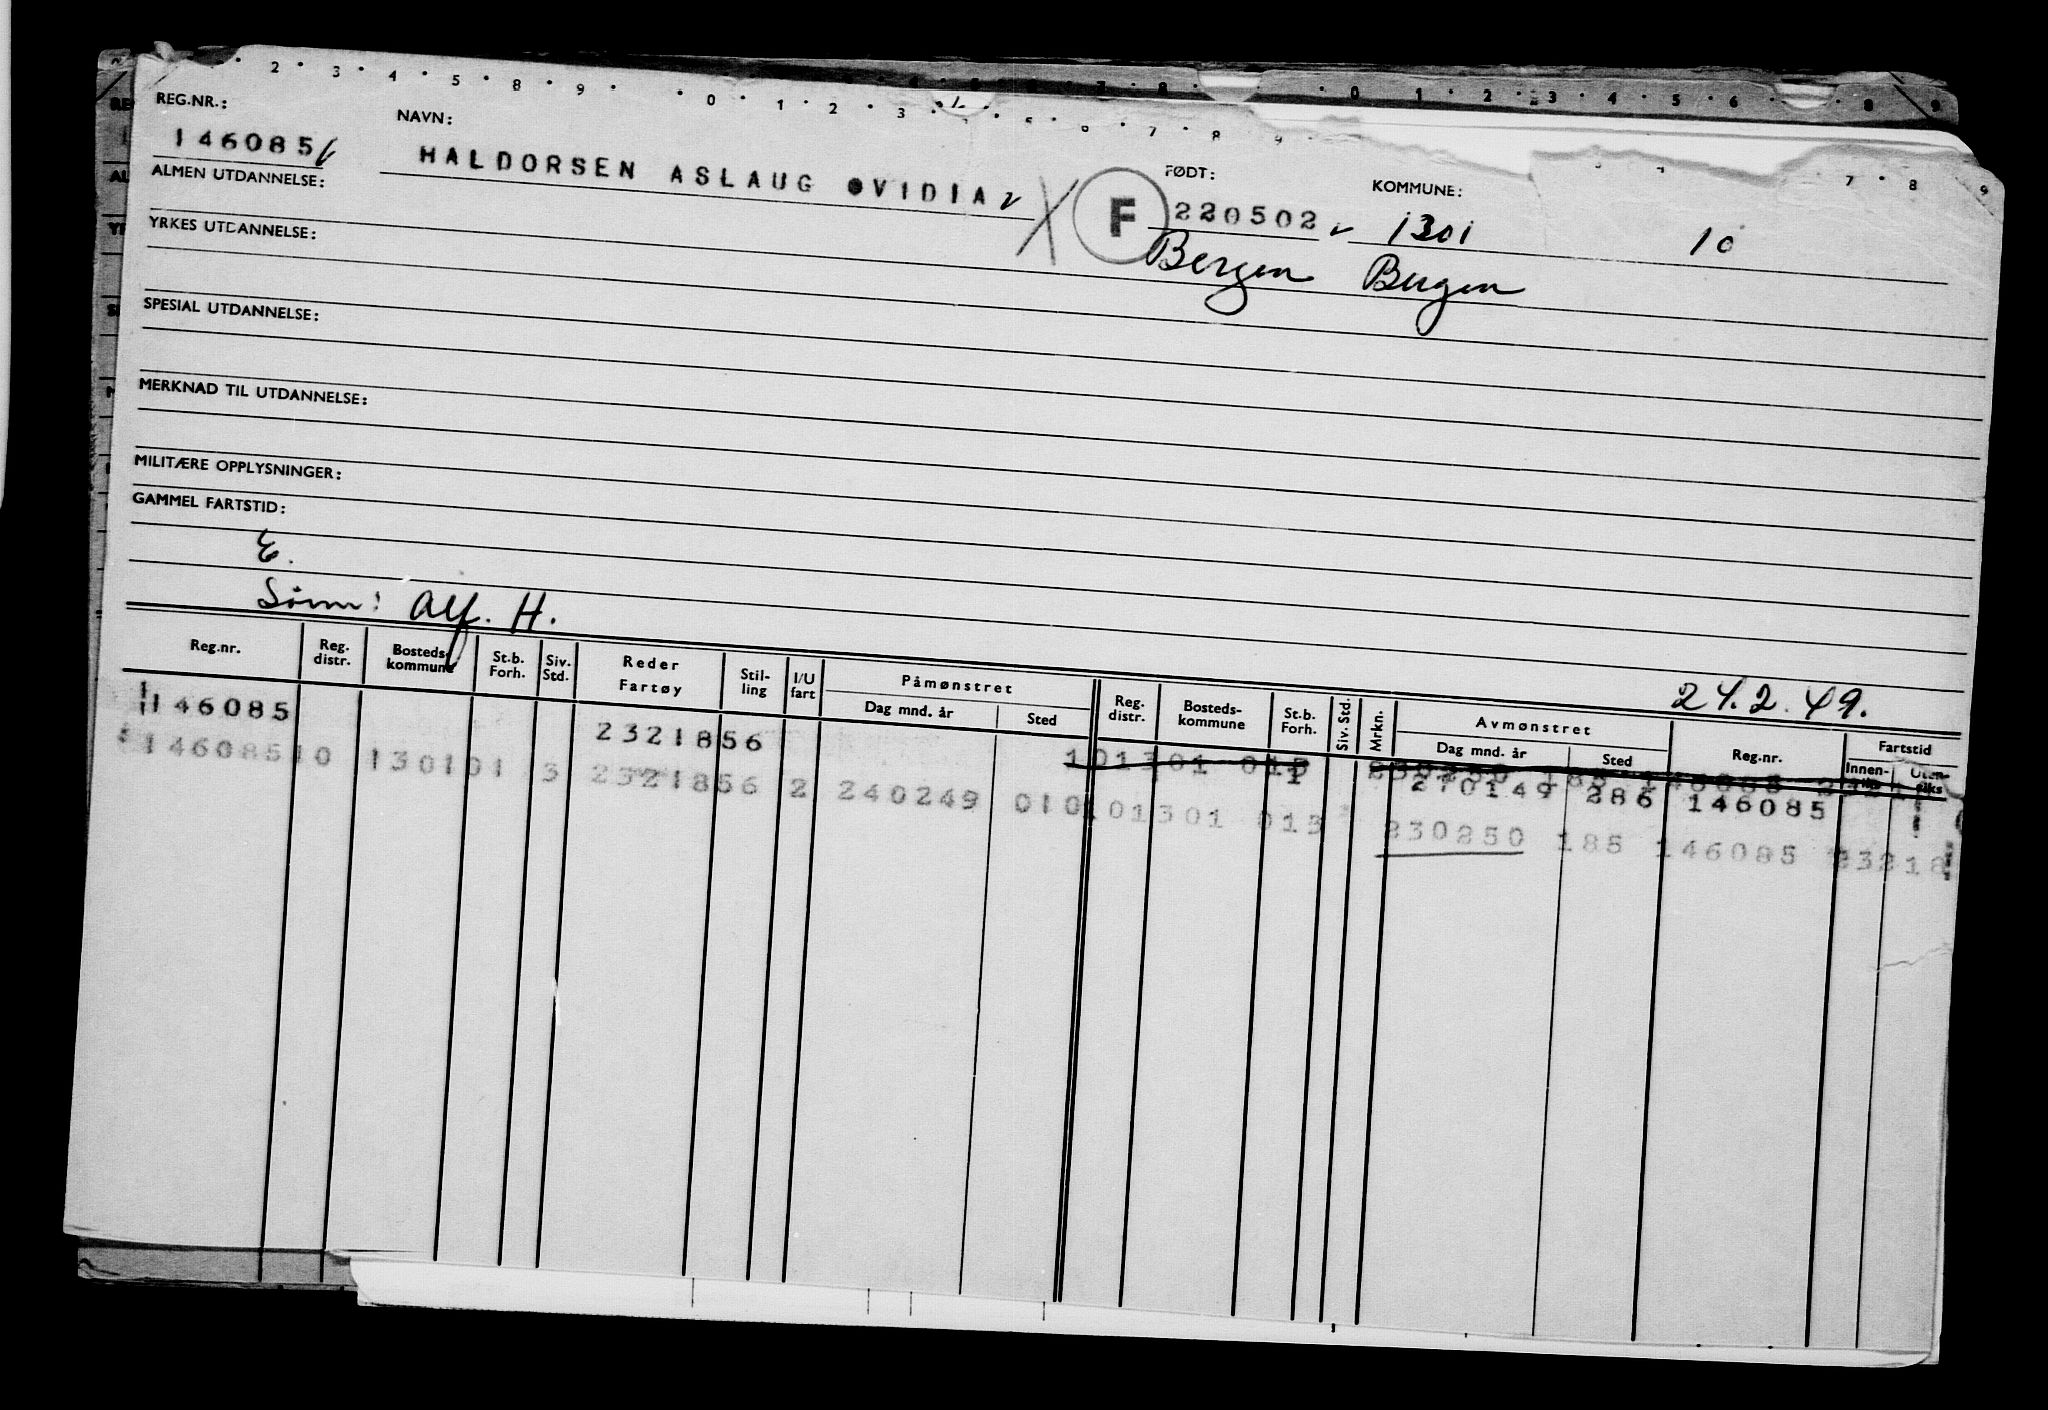 2 · 3 · 4 · 5 · 8 · 9 · · 0 · 1 · 2 · 3 · 7 · 8 · 0 · 1 · 2 · 3 · 4 · 5 · 6 · 8 · 9
REG.NR.: NAVN: FØDT: KOMMUNE: 7 · 8 · 9
146085 HALDORSEN ASLAUG OVIDIA F 220502 1301 10
ALMEN UTDANNELSE: Bergen Bergen
YRKES UTDANNELSE:
SPESIAL UTDANNELSE:
MERKNAD TIL UTDANNELSE:
MILITÆRE OPPLYSNINGER:
GAMMEL FARTSTID:
E.
Sønn: Alf. H.
24.2.49.
Reg.nr. Reg. distr. Bosteds- kommune St.b. Forh. Siv. Std. Reder Fartøy Stil- ling I/U fart Påmønstret Dag mnd. år Sted Reg. distr. Bosteds- kommune St.b. Forh. Siv. Std. Mrkn. Avmønstret Dag mnd. år Sted Reg.nr. Fartstid Innen- Uten- riks
146085 2321856 1 270149 286 146085
146085 10 1301 01 3 2321856 2 240249 010 101301 013 230250 185 146085 23218